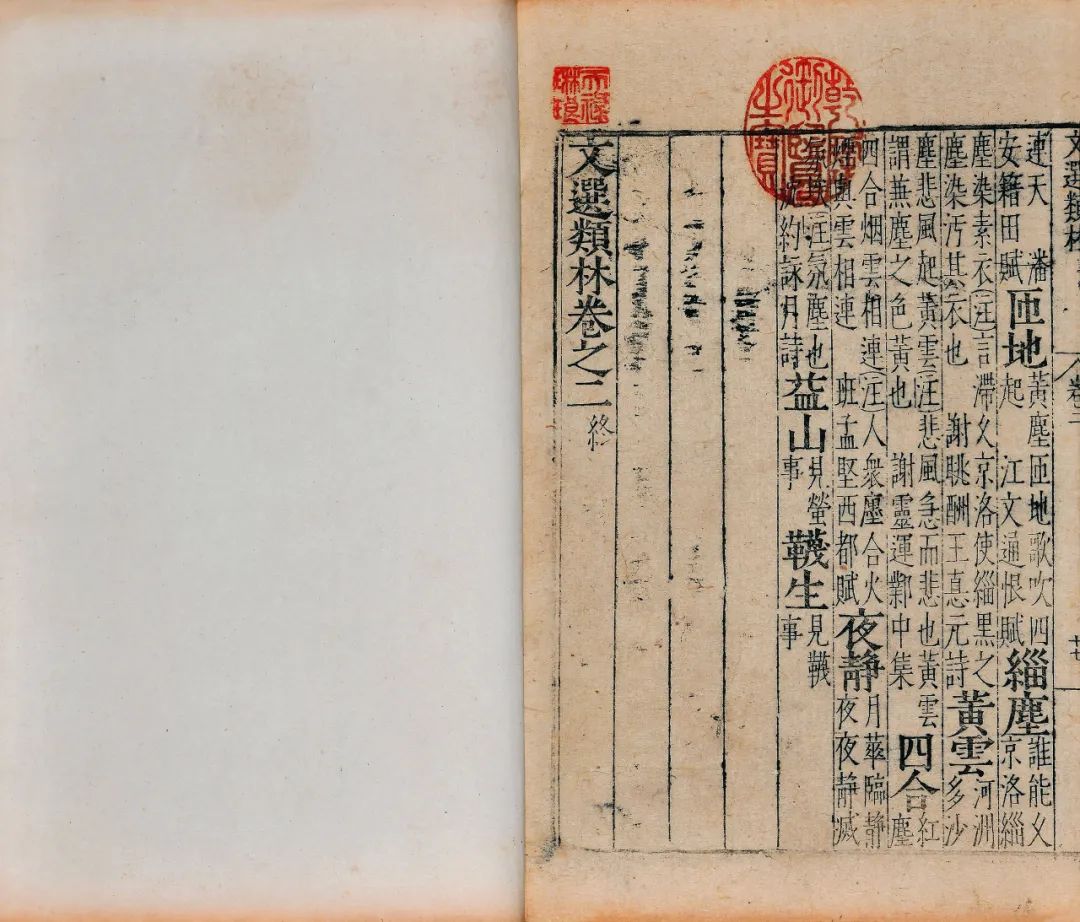 文選類林 卷二 廿七
連天 潘安籍田賦 匝地 黃塵匝地歌吹四起 江文通恨賦 緇塵 誰能久京洛緇
塵染素衣注言滯久京洛使緇黑之塵染汚其衣也 謝眺酬王悳元詩 黃雲 河洲多沙
塵悲風起黃雲注悲風急而悲也黃雲謂兼塵之色黃也 謝靈運鄴中集 四合 紅塵
四合烟雲相連注人衆塵合火煙與雲相連 班孟堅西都賦 夜靜 月華臨靜夜夜靜滅
氛埃注氛塵也 沈約詠月詩 益山 見螢事 韈生 見韈事
文選類林卷之二終
乾隆御覽之寶
天祿琳琅